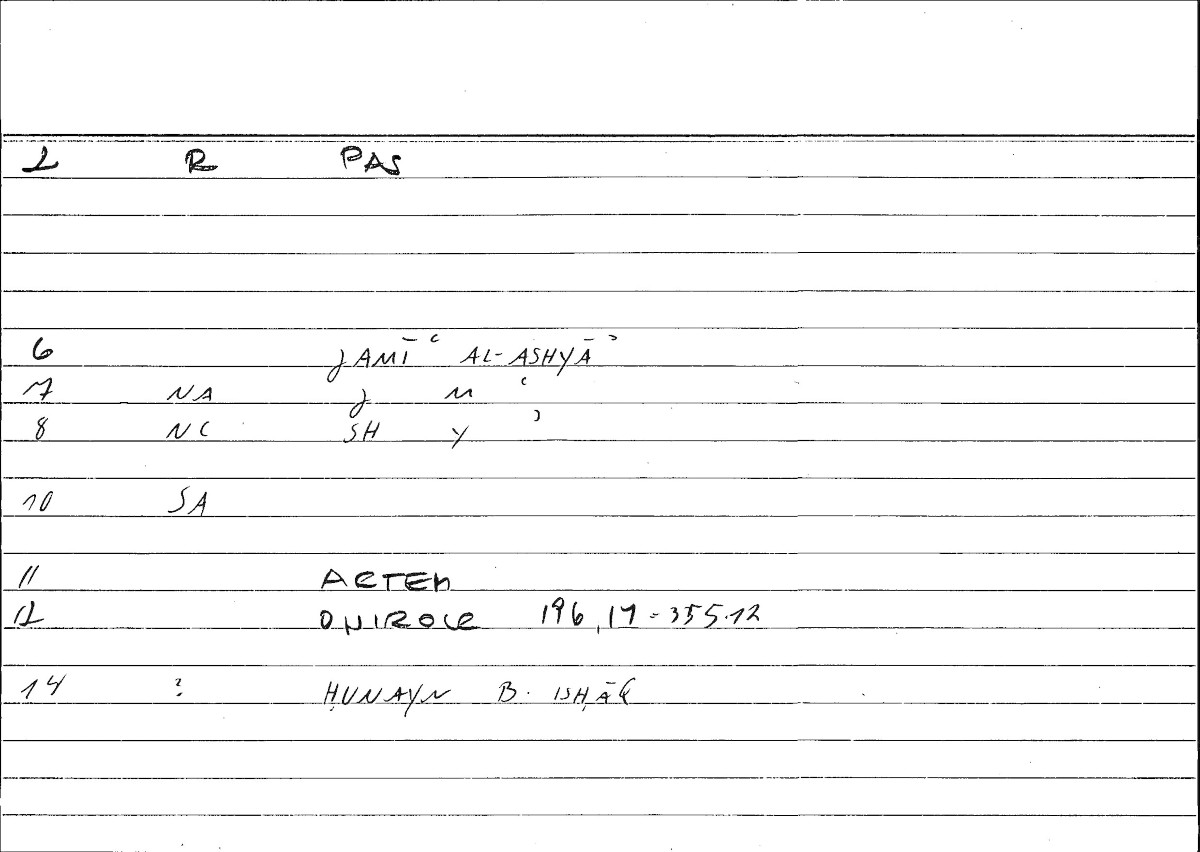 L R PAS
6 JAMĪʿ AL-ASHYĀʾ
7 NA J M ʿ
8 NC SH Y ʾ
10 SA
11 ARTEM
12 ONIROCR 196,17-355.12
14 ? ḤUNAYN B. ISḤĀQ